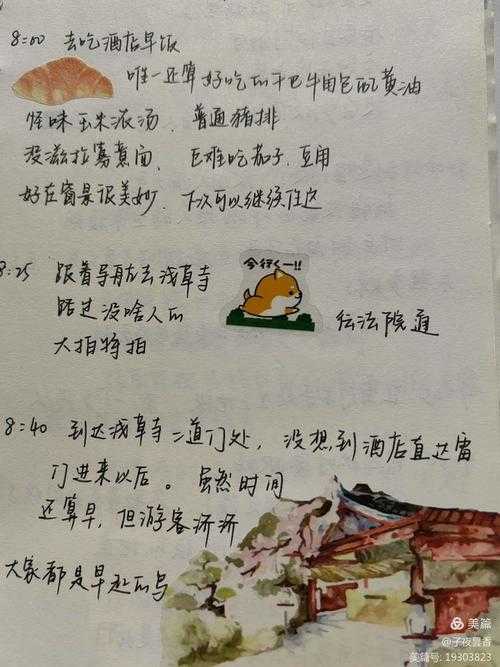 8:00 去吃酒店早饭
唯一还算好吃的干巴牛角包配黄油
怪味玉米浓汤、普通猪排
没滋拉寡煮面、巨难吃茄子、豆角
好在窗景很美妙、下次可以继续住这
8:25 跟着导航去浅草寺
今行く—!!
路过没啥人的 传法院通
大拍特拍
8:40 到达浅草寺二道门处，没想到酒店直达雷
门进来以后。虽然时间
还算早，但游客济济
大家都是早起的鸟
美篇
@子夜昙香
美篇号: 19303823